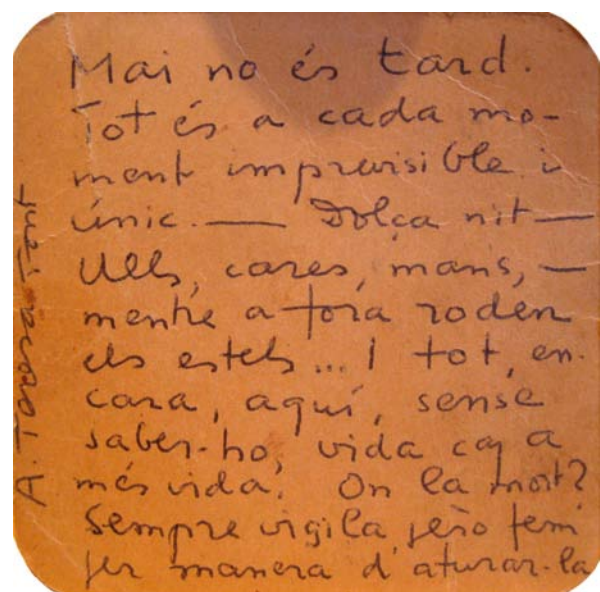 Mai no és tard.
Tot és a cada mo-
ment imprevisible i
únic. — Dolça nit —
Ulls, cares, mans, —
mentre a fora roden
els estels... I tot, en-
cara, aquí, sense
saber-ho, vida cap a
més vida. On la mort?
Sempre vigila, però fem
per manera d'aturar-la
A.